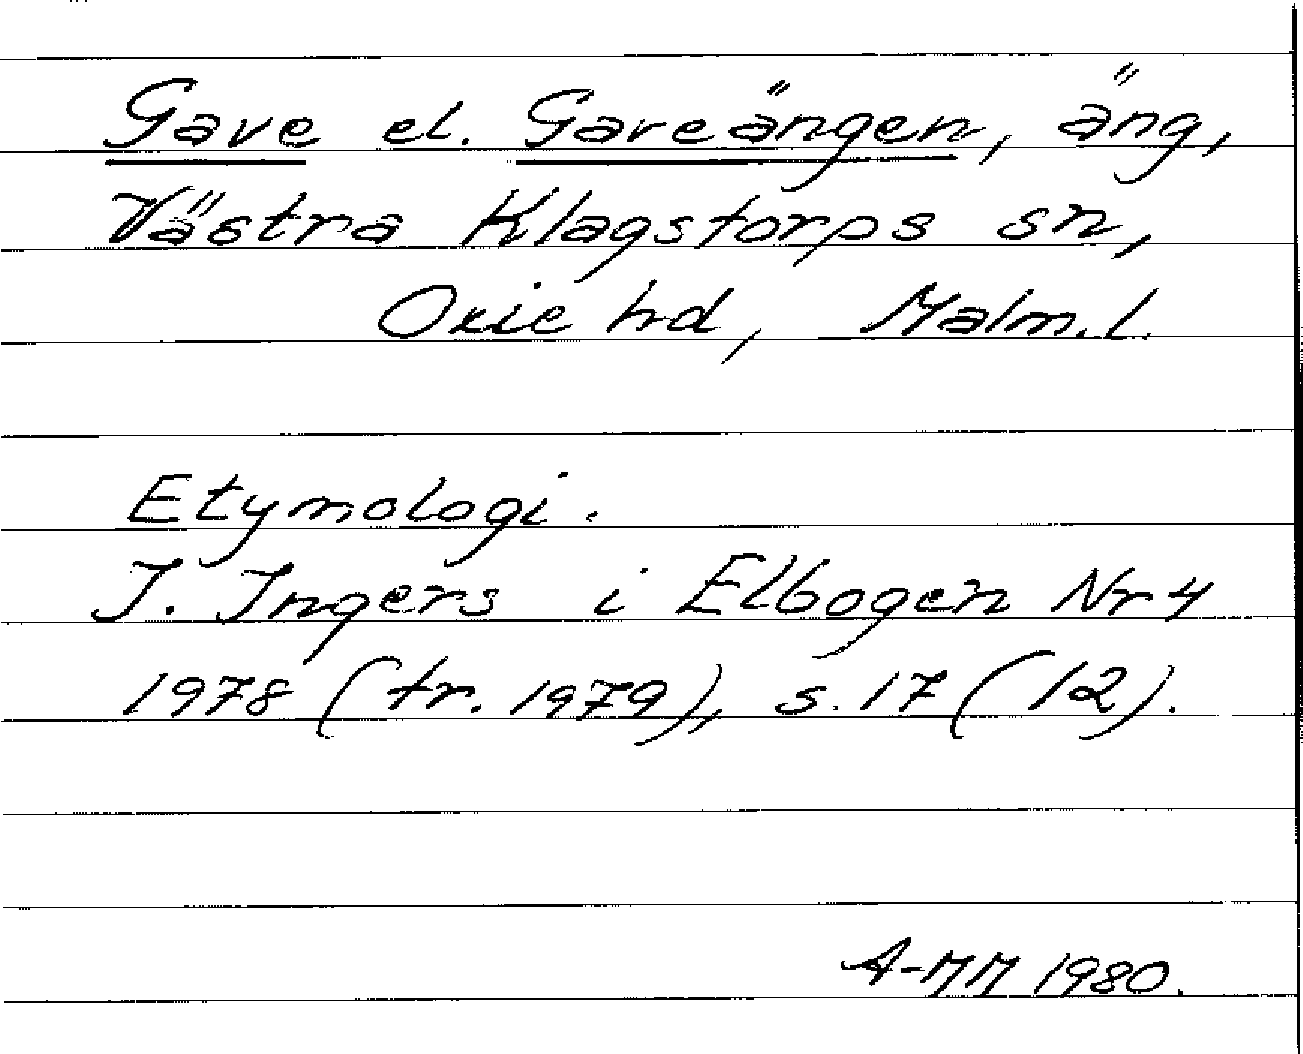 Gave el. Gaveängen, äng,
Västra Klagstorps sn,
Oxie hd, Malm. l.
Etymologi.
I. Ingers i Elbogen Nr 4
1978 (tr. 1979), s. 17 (12).
A-MM 1980.